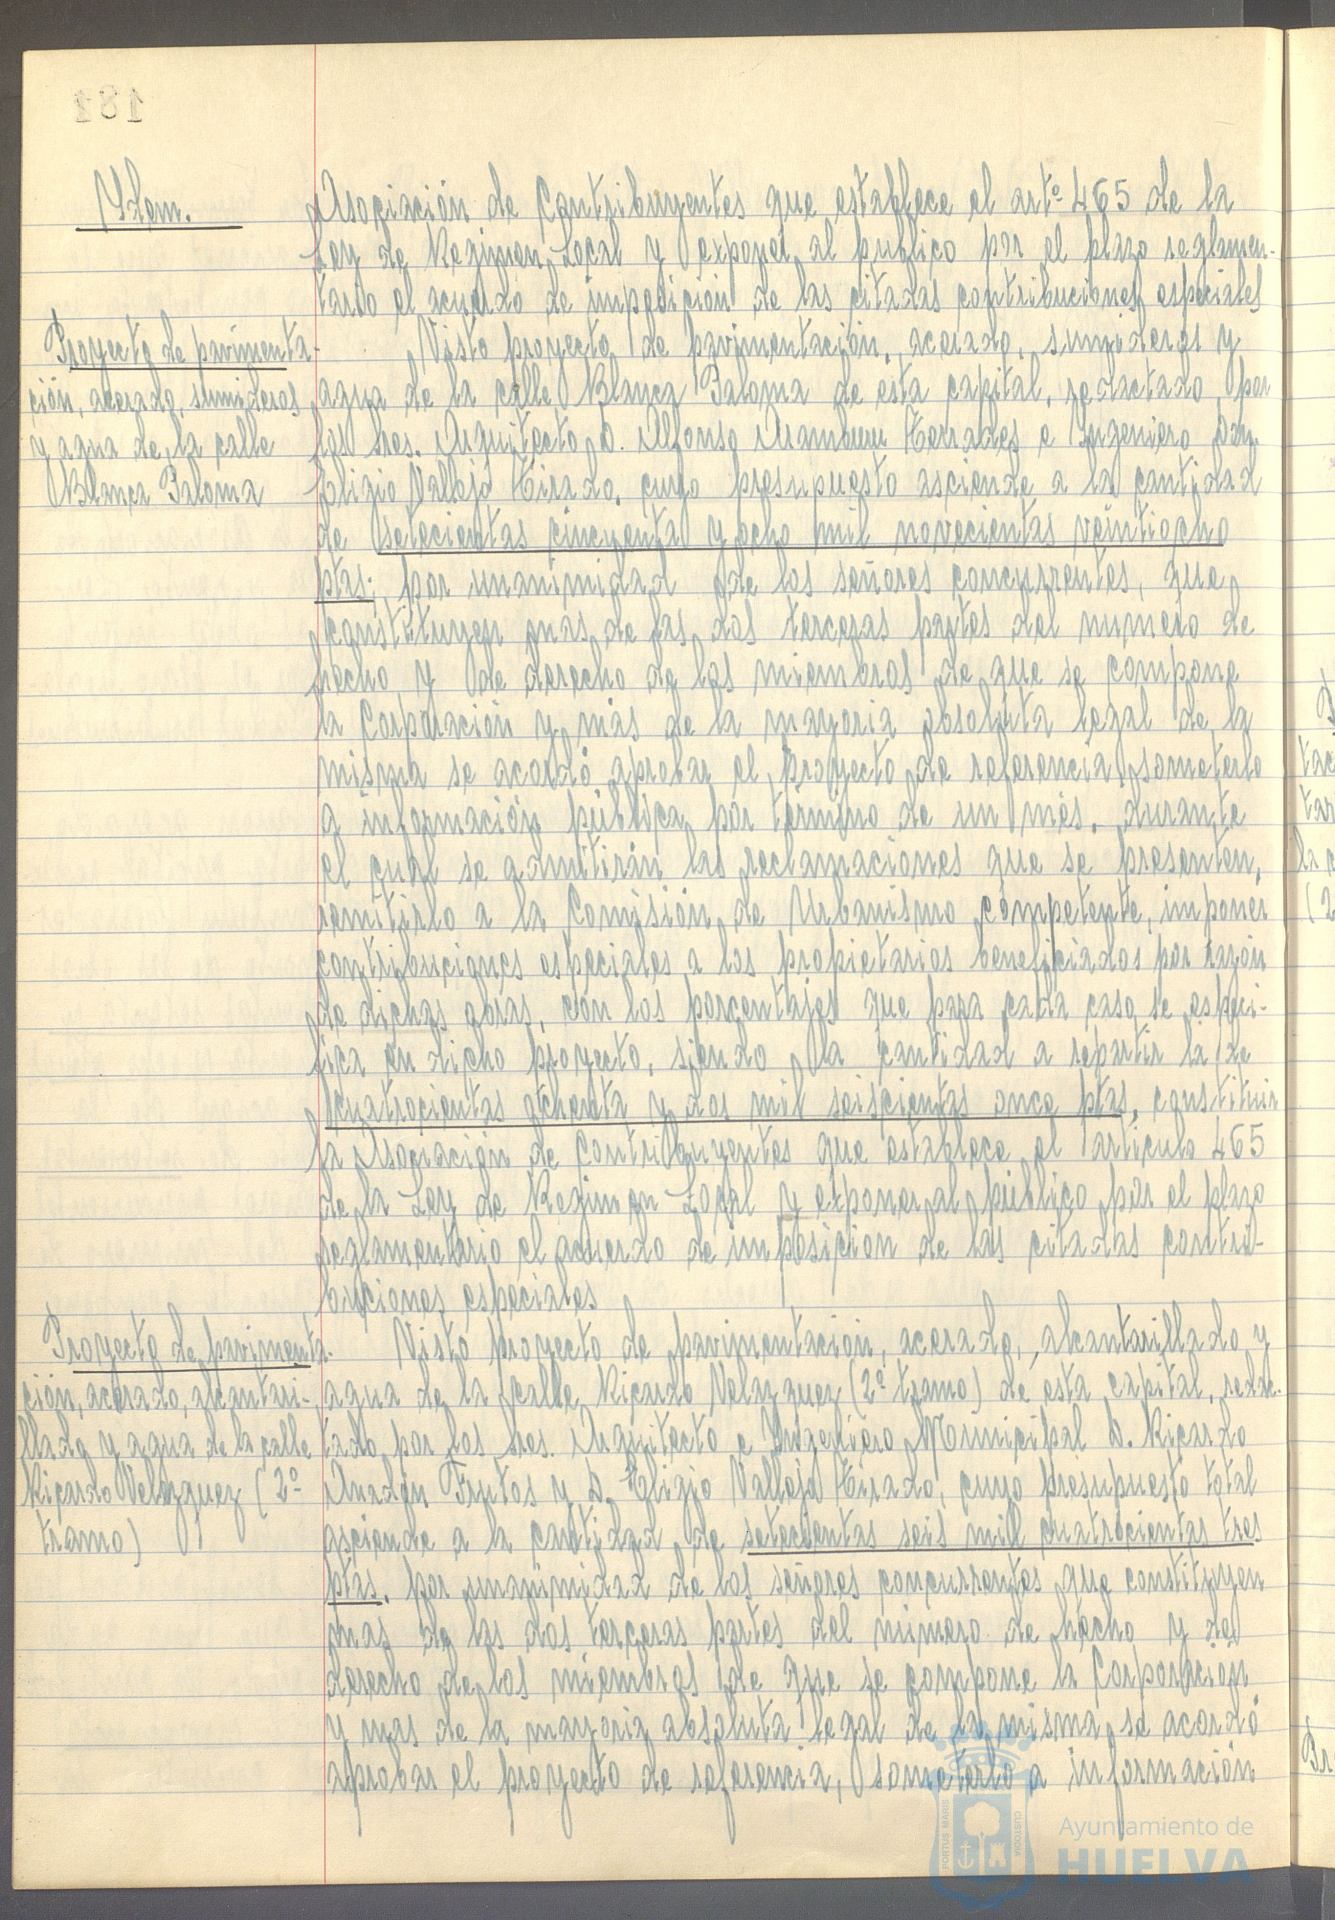 181
Ydem.
Asociación de Contribuyentes que establece el artº 465 de la
Ley de Regimen Local y exponer al publico por el plazo reglamen-
tario el acuerdo de imposicion de las citadas contribuciones especiales
Proyecto de pavimenta-
ción, acerado, sumideros
y agua de la calle
Blanca Paloma
Visto proyecto de pavimentación, acerado, sumideros y
agua de la calle Blanca Paloma de esta capital, redactado por
los Sres. Arquitecto D. Alfonso Aramburu Terrades e Ingeniero Don
Eligio Vallejo Tirado, cuyo presupuesto asciende a la cantidad
de setecientas cincuenta y ocho mil novecientas veintiocho
ptas; por unanimidad de los señores concurrentes, que
constituyen mas de las dos terceras partes del numero de
hecho y de derecho de los miembros de que se compone
la Corporación y mas de la mayoria absoluta legal de la
misma se acordó aprobar el proyecto de referencia, someterlo
a información pública por termino de un mes, durante
el cual se admitirán las reclamaciones que se presenten,
remitirlo a la Comisión de Urbanismo competente, imponer
contribuciones especiales a los propietarios beneficiados por razón
de dichas obras, con los porcentajes que para cada caso se especi-
fica en dicho proyecto, siendo la cantidad a repartir la de
cuatrocientas ochenta y dos mil seiscientas once ptas, constituir
la Asociación de Contribuyentes que establece el articulo 465
de la Ley de Regimen Local y exponer al público por el plazo
reglamentario el acuerdo de imposicion de las citadas contri-
buciones especiales
Proyecto de pavimenta-
ción, acerado, alcantari-
llado y agua de la calle
Ricardo Velazquez (2º
tramo)
Visto proyecto de pavimentación, acerado, alcantarillado y
agua de la calle Ricardo Velazquez (2º tramo) de esta capital, redac-
tado por los Sres. Arquitecto e Ingeniero Municipal D. Ricardo
Anadón Frutos y D. Eligio Vallejo Tirado, cuyo presupuesto total
asciende a la cantidad de setecientas seis mil cuatrocientas tres
ptas. por unanimidad de los señores concurrentes que constituyen
mas de las dos terceras partes del número de hecho y de
derecho de los miembros de que se compone la Corporacion
y mas de la mayoria absoluta legal de la misma, se acordó
aprobar el proyecto de referencia, someterlo a información
PORTUS MARIS
CUSTODIA
Ayuntamiento de
HUELVA